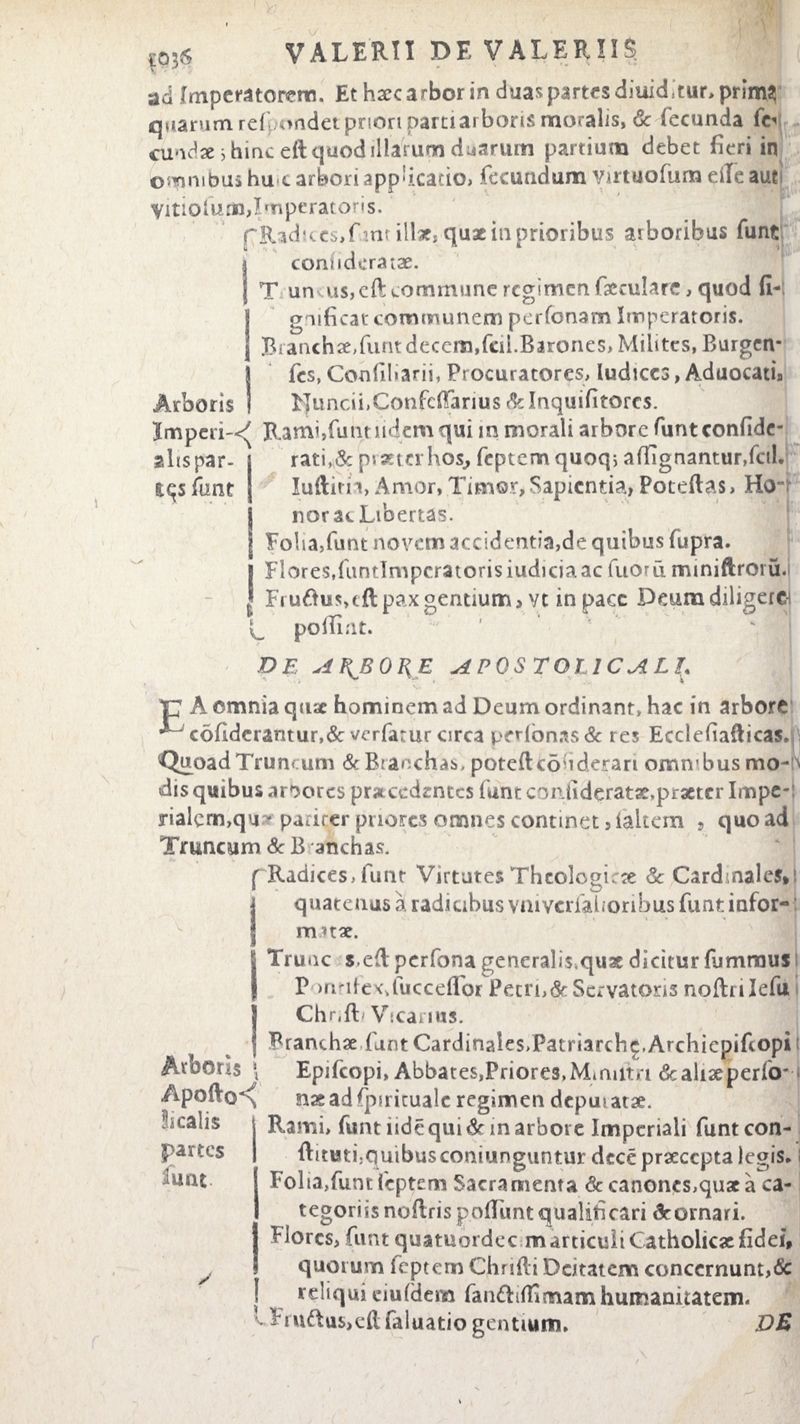 1036 VALERII DE VALERIIS
ad Imperatorem. Et hæc arbor in duas partes diuiditur, prima
quarum respondet priori parti arboris moralis, & secunda se-
cundæ; hinc est quod illarum duarum partium debet fieri in
omnibus huic arbori applicatio, secundum virtuosum esse aut
vitiosum, Imperatoris.
Radices, sunt illæ, quæ in prioribus arboribus sunt
consideratæ.
Truncus, est commune regimen sæculare, quod si-
gnificat communem personam Imperatoris.
Branchæ, sunt decem, scil. Barones, Milites, Burgen-
ses, Consiliarii, Procuratores, Iudices, Aduocati,
Arboris Nuncii, Confessarius & Inquisitores.
Imperi- Rami, sunt iidem qui in morali arbore sunt conside-
alis par- rati, & præter hos, septem quoq; assignantur, scil.
tęs sunt Iustitia, Amor, Timor, Sapientia, Potestas, Ho-
nor ac Libertas.
Folia, sunt novem accidentia, de quibus supra.
Flores, sunt Imperatoris iudicia ac suorū ministrorū.
Fructus, est pax gentium, vt in pace Deum diligere
possint.
DE ARBORE APOSTOLICALI.
EA omnia quæ hominem ad Deum ordinant, hac in arbore
cōsiderantur, & versatur circa personas & res Ecclesiasticas.
Quoad Truncum & Branchas, potest cōsiderari omnibus mo-
dis quibus arbores præcedentes sunt consideratæ, præter Impe-
rialem, quæ pariter priores omnes continet, saltem , quo ad
Truncum & Branchas.
Radices, sunt Virtutes Theologicæ & Cardinales,
quatenus à radicibus vniversalioribus sunt infor-
matæ.
Truncus, est persona generalis, quæ dicitur summus
Pontifex, successor Petri, & Servatoris nostri Iesu
Christi Vicarius.
Branchæ sunt Cardinales, Patriarchę, Archiepiscopi
Arboris Episcopi, Abbates, Priores, Ministri & aliæ perso-
Aposto- næ ad spirituale regimen deputatæ.
licalis Rami, sunt iidē qui & in arbore Imperiali sunt con-
partes stituti, quibus coniunguntur decē præcepta legis.
sunt. Folia, sunt septem Sacramenta & canones, quæ à ca-
tegoriis nostris possunt qualificari & ornari.
Flores, sunt quatuordecim articuli Catholicæ fidei,
quorum septem Christi Deitatem concernunt, &
reliqui eiusdem sanctissimam humanitatem.
Fructus, est saluatio gentium. DE